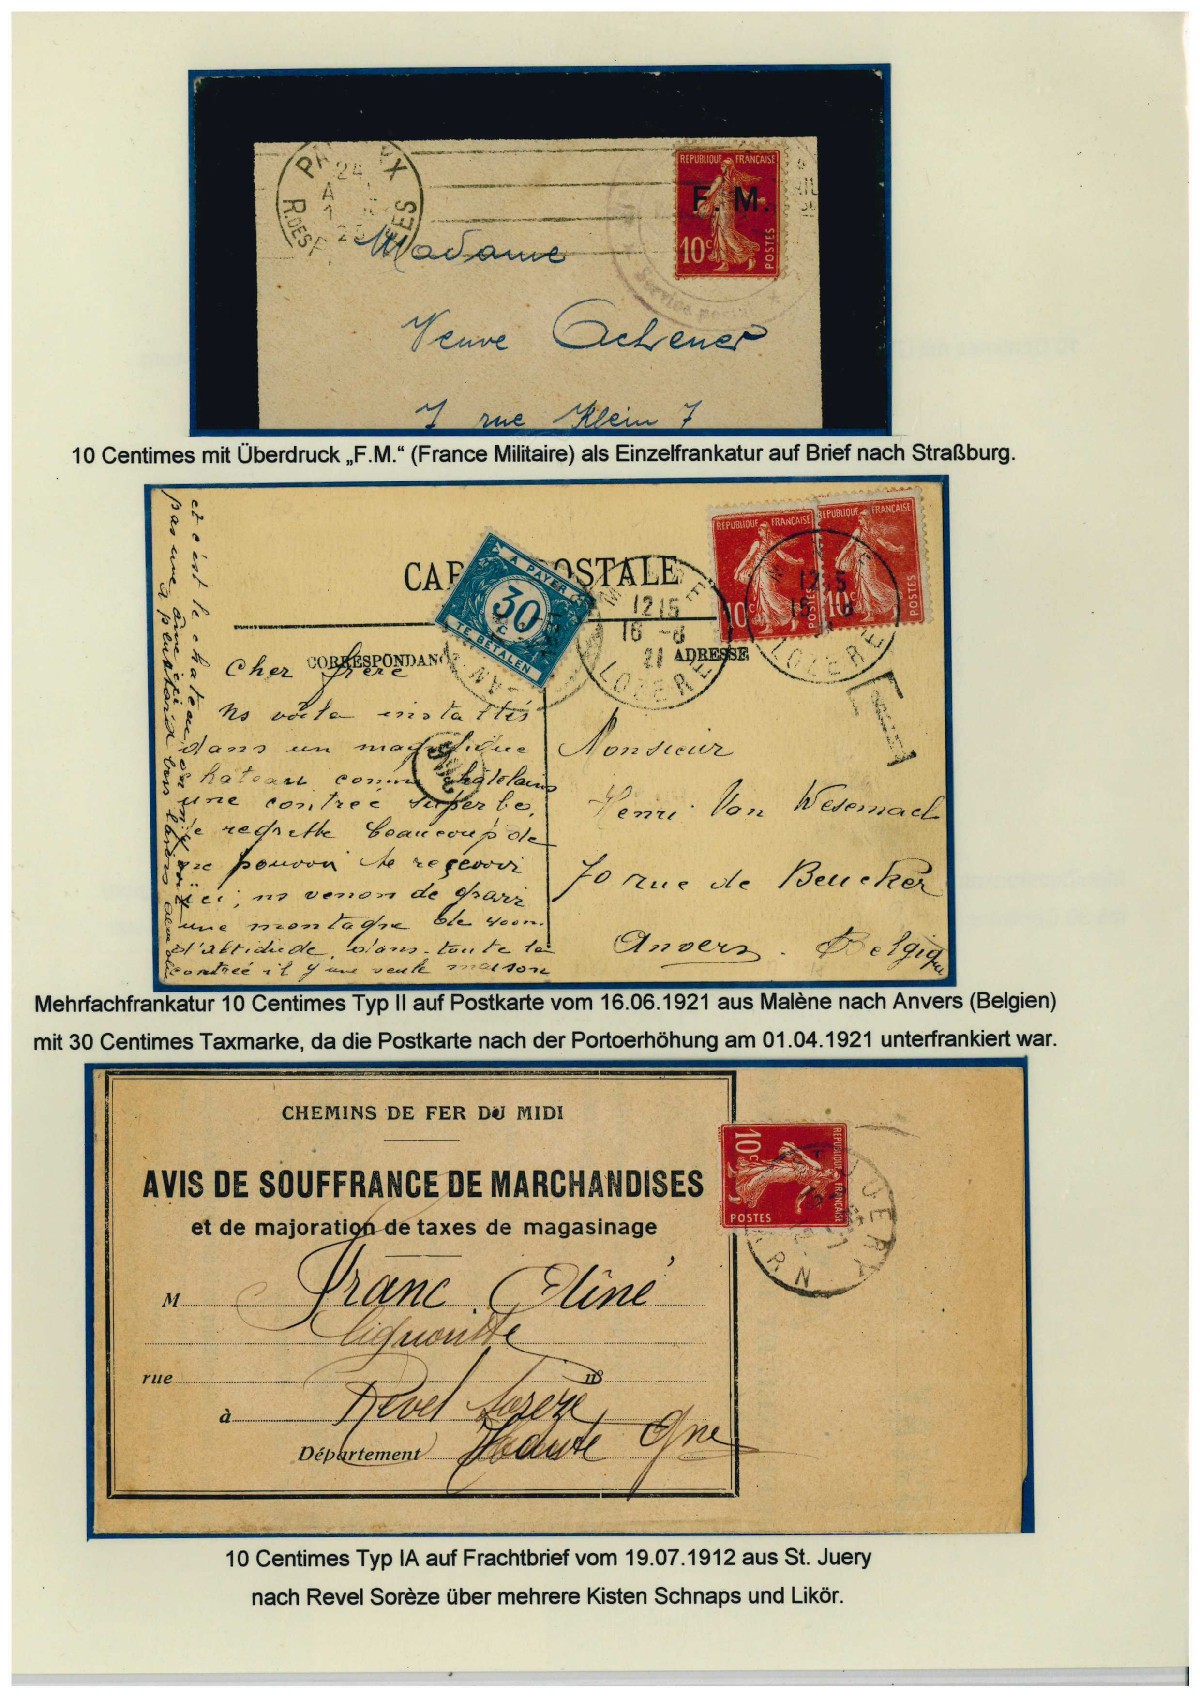 PA X
24
R. DES F ES
25
REPUBLIQUE FRANÇAISE
F. M.
10c
POSTES
Service postal
Madame
Veuve Achener
7 rue Klein 7
10 Centimes mit Überdruck „F.M.“ (France Militaire) als Einzelfrankatur auf Brief nach Straßburg.
CAR POSTALE
A PAYER
30
C
TE BETALEN
REPUBLIQUE FRANÇAISE
10c
POSTES
REPUBLIQUE FRANÇAISE
10c
POSTES
1215
16 -6
21
LOZERE
1215
16 -6
LOZERE
CORRESPONDANC
ADRESSE
Cher frère
Ns voila installés
dans un magnifique
chateau comme chatelains
une contrée superbe,
je regrette beaucoup de
ne pouvoir te recevoir
ici, ns venon de gravir
une montagne de
d'altidude, dans toute la
contrée il y une seule maison
et c'est le chateau
pas une
Monsieur
Henri Van Wesemael
70 rue de Beucker
Anvers. Belgique
Mehrfachfrankatur 10 Centimes Typ II auf Postkarte vom 16.06.1921 aus Malène nach Anvers (Belgien)
mit 30 Centimes Taxmarke, da die Postkarte nach der Portoerhöhung am 01.04.1921 unterfrankiert war.
CHEMINS DE FER DU MIDI
AVIS DE SOUFFRANCE DE MARCHANDISES
et de majoration de taxes de magasinage
REPUBLIQUE FRANÇAISE
10c
POSTES
JUERY
TARN
M Franc Aliné
rue nº
à Revel Sorèze
Département Haute Gne
10 Centimes Typ IA auf Frachtbrief vom 19.07.1912 aus St. Juery
nach Revel Sorèze über mehrere Kisten Schnaps und Likör.